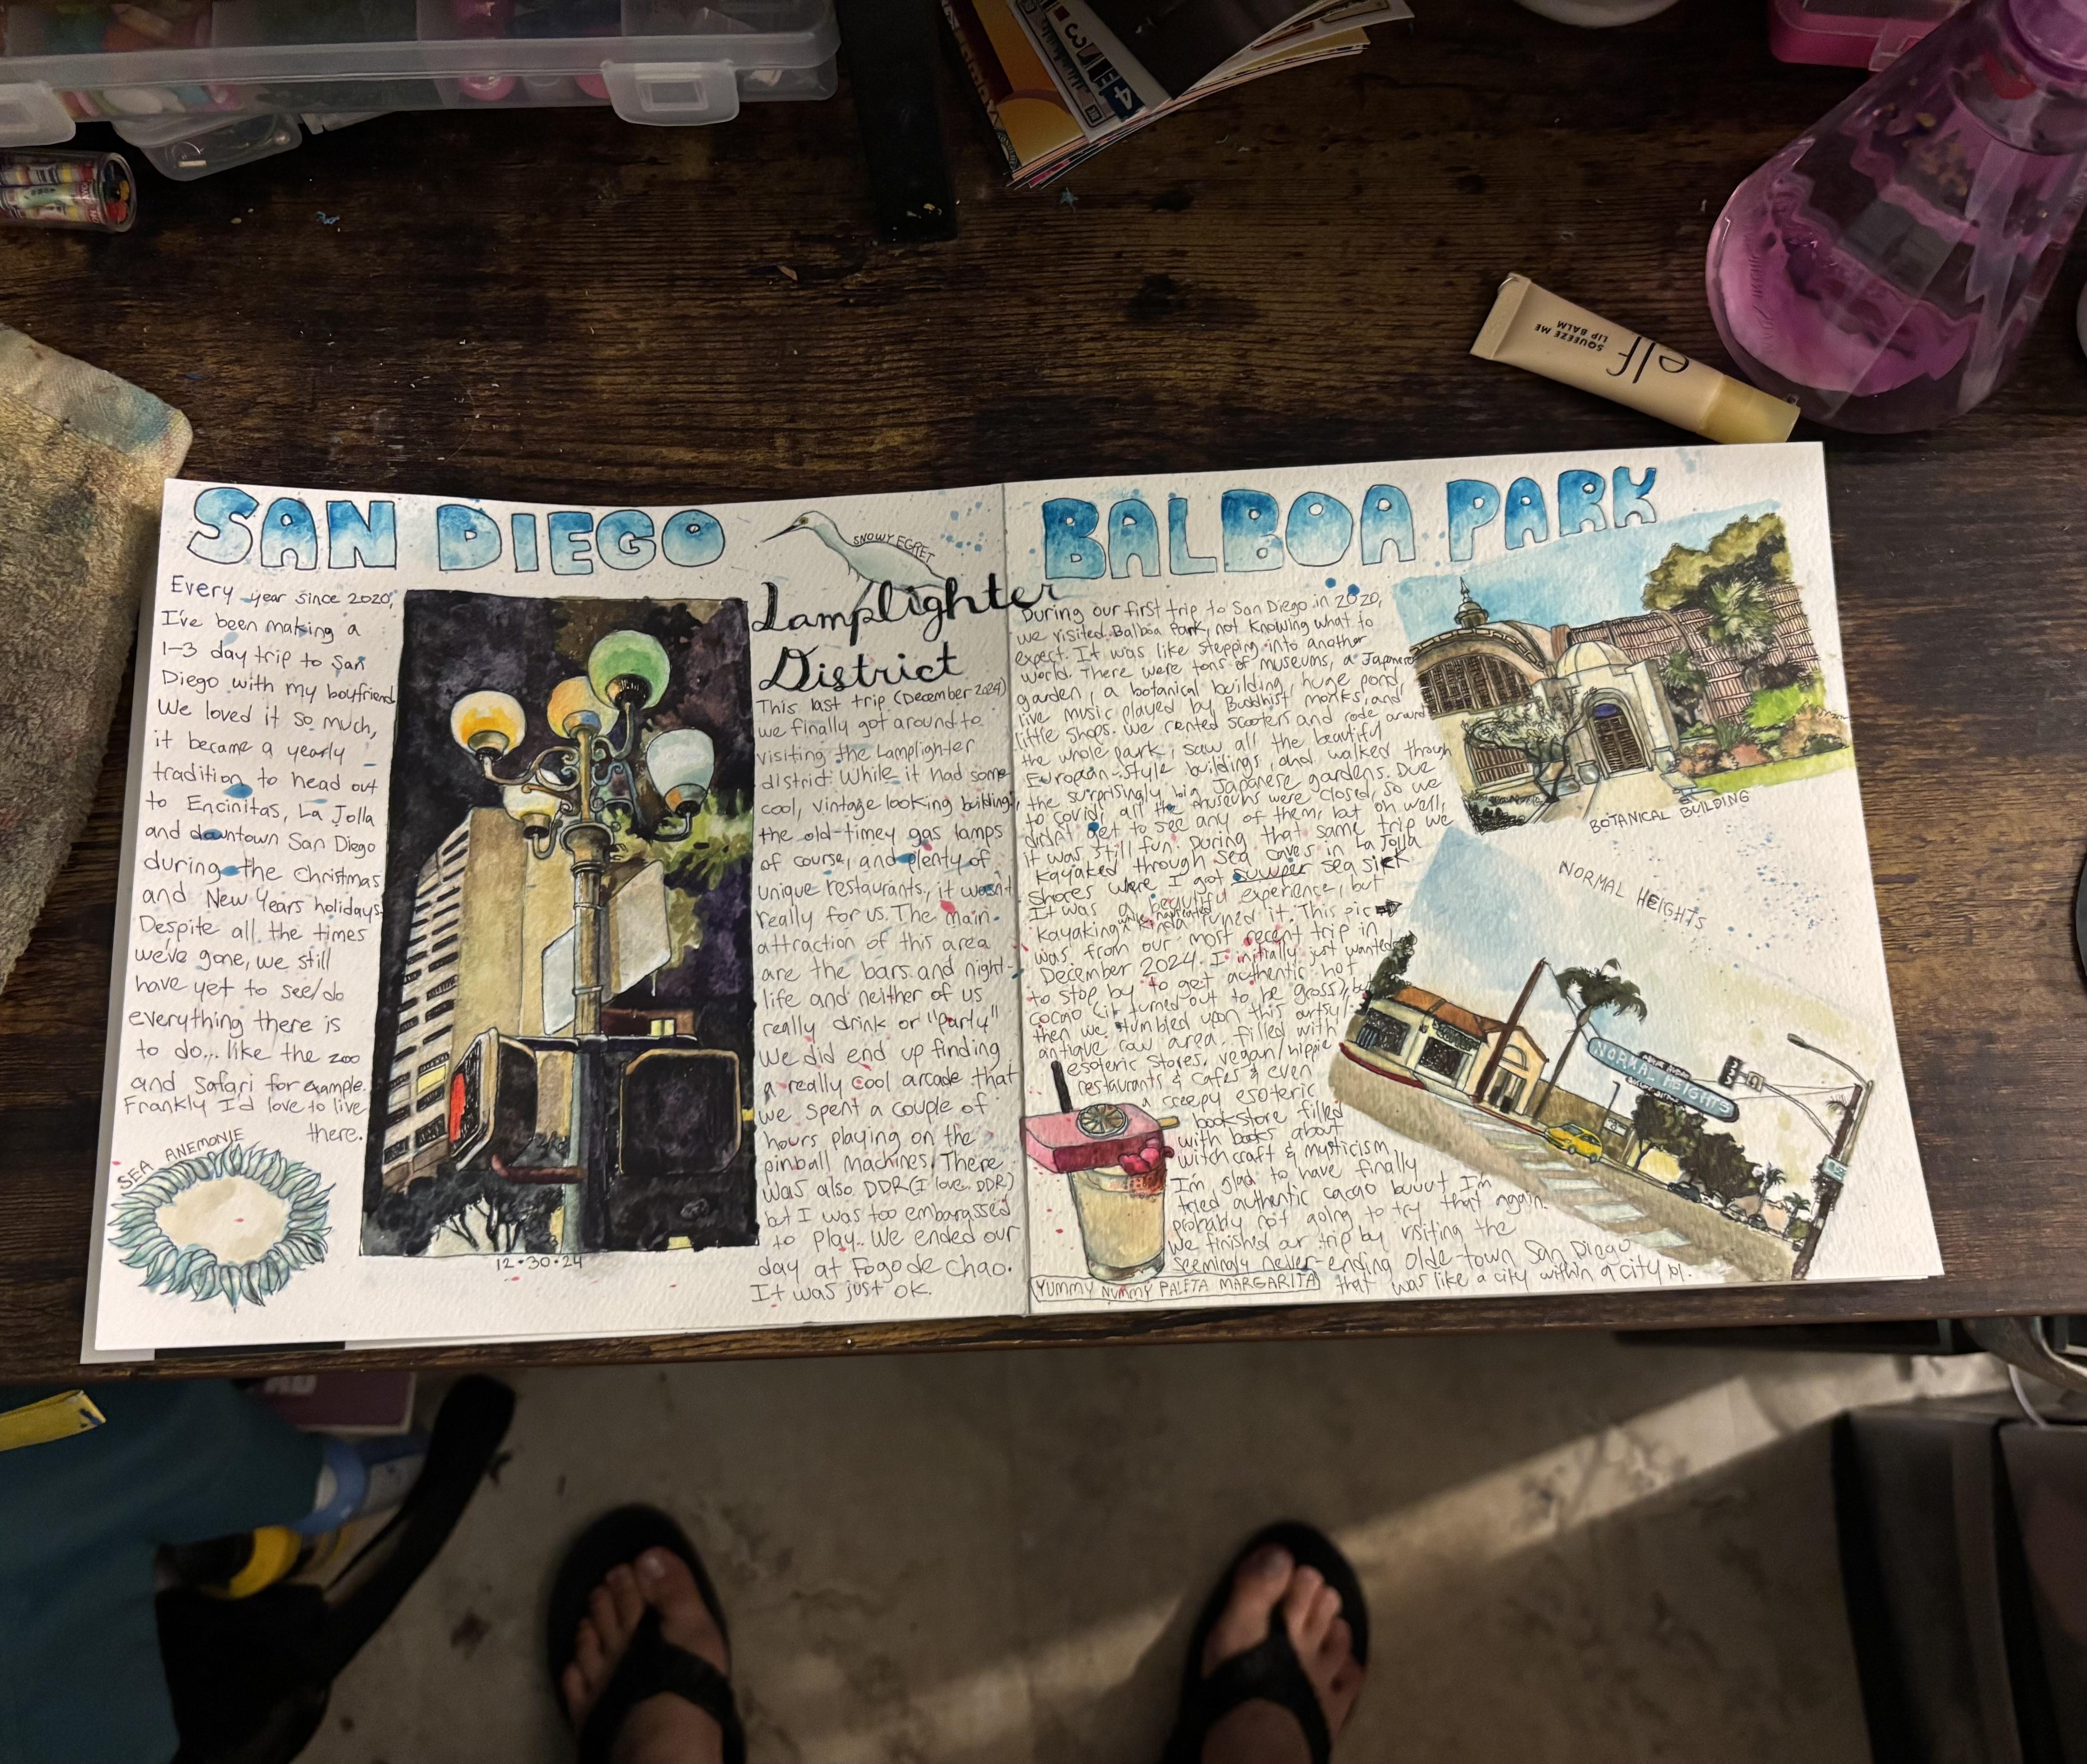 SAN DIEGO
Every year since 2020,
I've been making a
1-3 day trip to San
Diego with my boyfriend
We loved it so much,
it became a yearly
tradition to head out
to Encinitas, La Jolla
and downtown San Diego
during the Christmas
and New Years holidays.
Despite all the times
we've gone, we still
have yet to see/do
everything there is
to do... like the zoo
and safari for example.
Frankly I'd love to live
there.
SEA ANEMONIE
12·30·24
SNOWY EGRET
Lamplighter
District
This last trip (December 2024)
we finally got around to
visiting the Lamplighter
district. While it had some
cool, vintage looking buildings,
the old-timey gas lamps
of course, and plenty of
unique restaurants, it wasn't
really for us. The main
attraction of this area
are the bars and night-
life and neither of us
really drink or "party"
We did end up finding
a really cool arcade that
we spent a couple of
hours playing on the
pinball machines. There
was also DDR (I love DDR)
but I was too embarassed
to play. We ended our
day at Fogo de Chao.
It was just ok.
BALBOA PARK
During our first trip to San Diego in 2020,
we visited Balboa Park, not knowing what to
expect. It was like stepping into another
world. There were tons of museums, a Japanese
garden, a botanical building, huge pond,
live music played by Buddhist monks, and
little shops. We rented scooters and rode around
the whole park, saw all the beautiful
European-style buildings, and walked through
the surprisingly big Japanese gardens. Due
to covid, all the museums were closed, so we
didn't get to see any of them, but oh well,
it was still fun. During that same trip we
kayaked through sea caves in La Jolla
Shores where I got suuuper sea sick.
It was a beautiful experience, but
kayaking while nauseated kinda ruined it. This pic
was from our most recent trip in
December 2024. I initially just wanted
to stop by to get authentic hot
cocao (it turned out to be gross), but
then we stumbled upon this artsy/
antique row area filled with
esoteric stores, vegan/hippie
restaurants & cafes & even
a creepy esoteric
bookstore filled
with books about
witchcraft & mysticism
I'm glad to have finally
tried authentic cacao buuut I'm
probably not going to try that again.
We finished our trip by visiting the
seemingly never-ending Olde town San Diego
that was like a city within a city
YUMMY NUMMY PALETA MARGARITA
BOTANICAL BUILDING
NORMAL HEIGHTS
NORMAL HEIGHTS
elf
SQUEEZE ME
LIP BALM